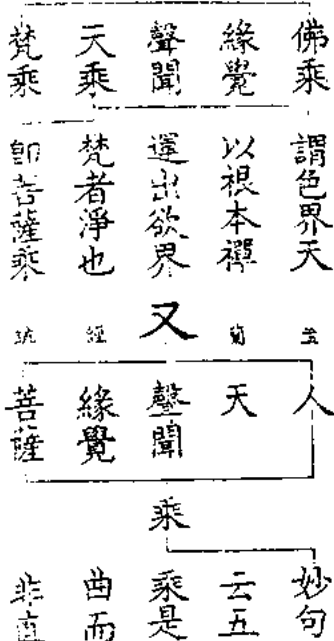 佛乘
緣覺
聲聞
天乘
梵乘
謂色界天
以根本禪
運出欲界
梵者淨也
即菩薩乘
又
盂蘭經疏
人
天
聲聞
緣覺
菩薩
乘
妙句
云五
乘是
曲而
非直